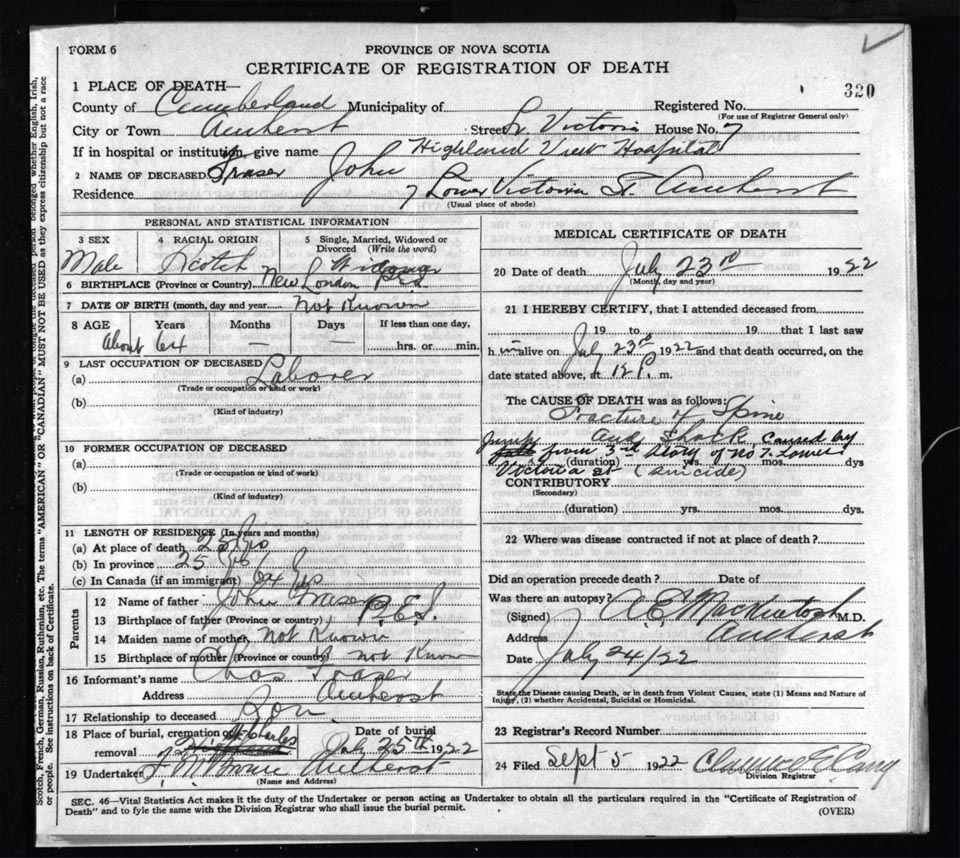 FORM 6
PROVINCE OF NOVA SCOTIA
CERTIFICATE OF REGISTRATION OF DEATH
320
1 PLACE OF DEATH—
County of Cumberland Municipality of Registered No.
(For use of Registrar General only)
City or Town Amherst Street Lr Victoria House No. 7
If in hospital or institution, give name Highland View Hospital
2 NAME OF DECEASED Fraser John
Residence 7 Lower Victoria St. Amherst
(Usual place of abode)
PERSONAL AND STATISTICAL INFORMATION
3 SEX 4 RACIAL ORIGIN 5 Single, Married, Widowed or Divorced (Write the word)
Male Scotch Widower
6 BIRTHPLACE (Province or Country) New London P.E.I.
7 DATE OF BIRTH (month, day and year) Not Known
8 AGE Years Months Days If less than one day,
About 64 — — hrs. or min.
9 LAST OCCUPATION OF DECEASED
(a) Laborer
(Trade or occupation or kind of work)
(b)
(Kind of industry)
10 FORMER OCCUPATION OF DECEASED
(a)
(Trade or occupation or kind of work)
(b)
(Kind of industry)
11 LENGTH OF RESIDENCE (In years and months)
(a) At place of death 25
(b) In province 25
(c) In Canada (if an immigrant) 64
Parents
12 Name of father John Fraser
13 Birthplace of father (Province or country) P.E.I.
14 Maiden name of mother Not Known
15 Birthplace of mother (Province or country) Not Known
16 Informant's name Chas Fraser
Address Amherst
17 Relationship to deceased Son
18 Place of burial, cremation or removal St. Charles Date of burial July 25th 1922
19 Undertaker Amherst
(Name and Address)
MEDICAL CERTIFICATE OF DEATH
20 Date of death July 23rd 1922
(Month, day and year)
21 I HEREBY CERTIFY, that I attended deceased from
19 to 19 that I last saw
h alive on July 23rd 1922 and that death occurred, on the
date stated above, at 12 P. m.
The CAUSE OF DEATH was as follows:
Fracture of Spine
and Shock, caused by
Jumping from 3rd Story of No 7. Lower
(duration) yrs. mos. dys
Victoria St (suicide)
CONTRIBUTORY
(Secondary)
(duration) yrs. mos. dys.
22 Where was disease contracted if not at place of death?
Did an operation precede death? Date of
Was there an autopsy?
(Signed) A.E. MacKintosh M.D.
Address Amherst
Date July 24/22
State the Disease causing Death, or in death from Violent Causes, state (1) Means and Nature of
Injury, (2) whether Accidental, Suicidal or Homicidal.
23 Registrar's Record Number
24 Filed Sept 5 1922
Division Registrar
SEC. 46—Vital Statistics Act makes it the duty of the Undertaker or person acting as Undertaker to obtain all the particulars required in the "Certificate of Registration of
Death" and to fyle the same with the Division Registrar who shall issue the burial permit.
(OVER)